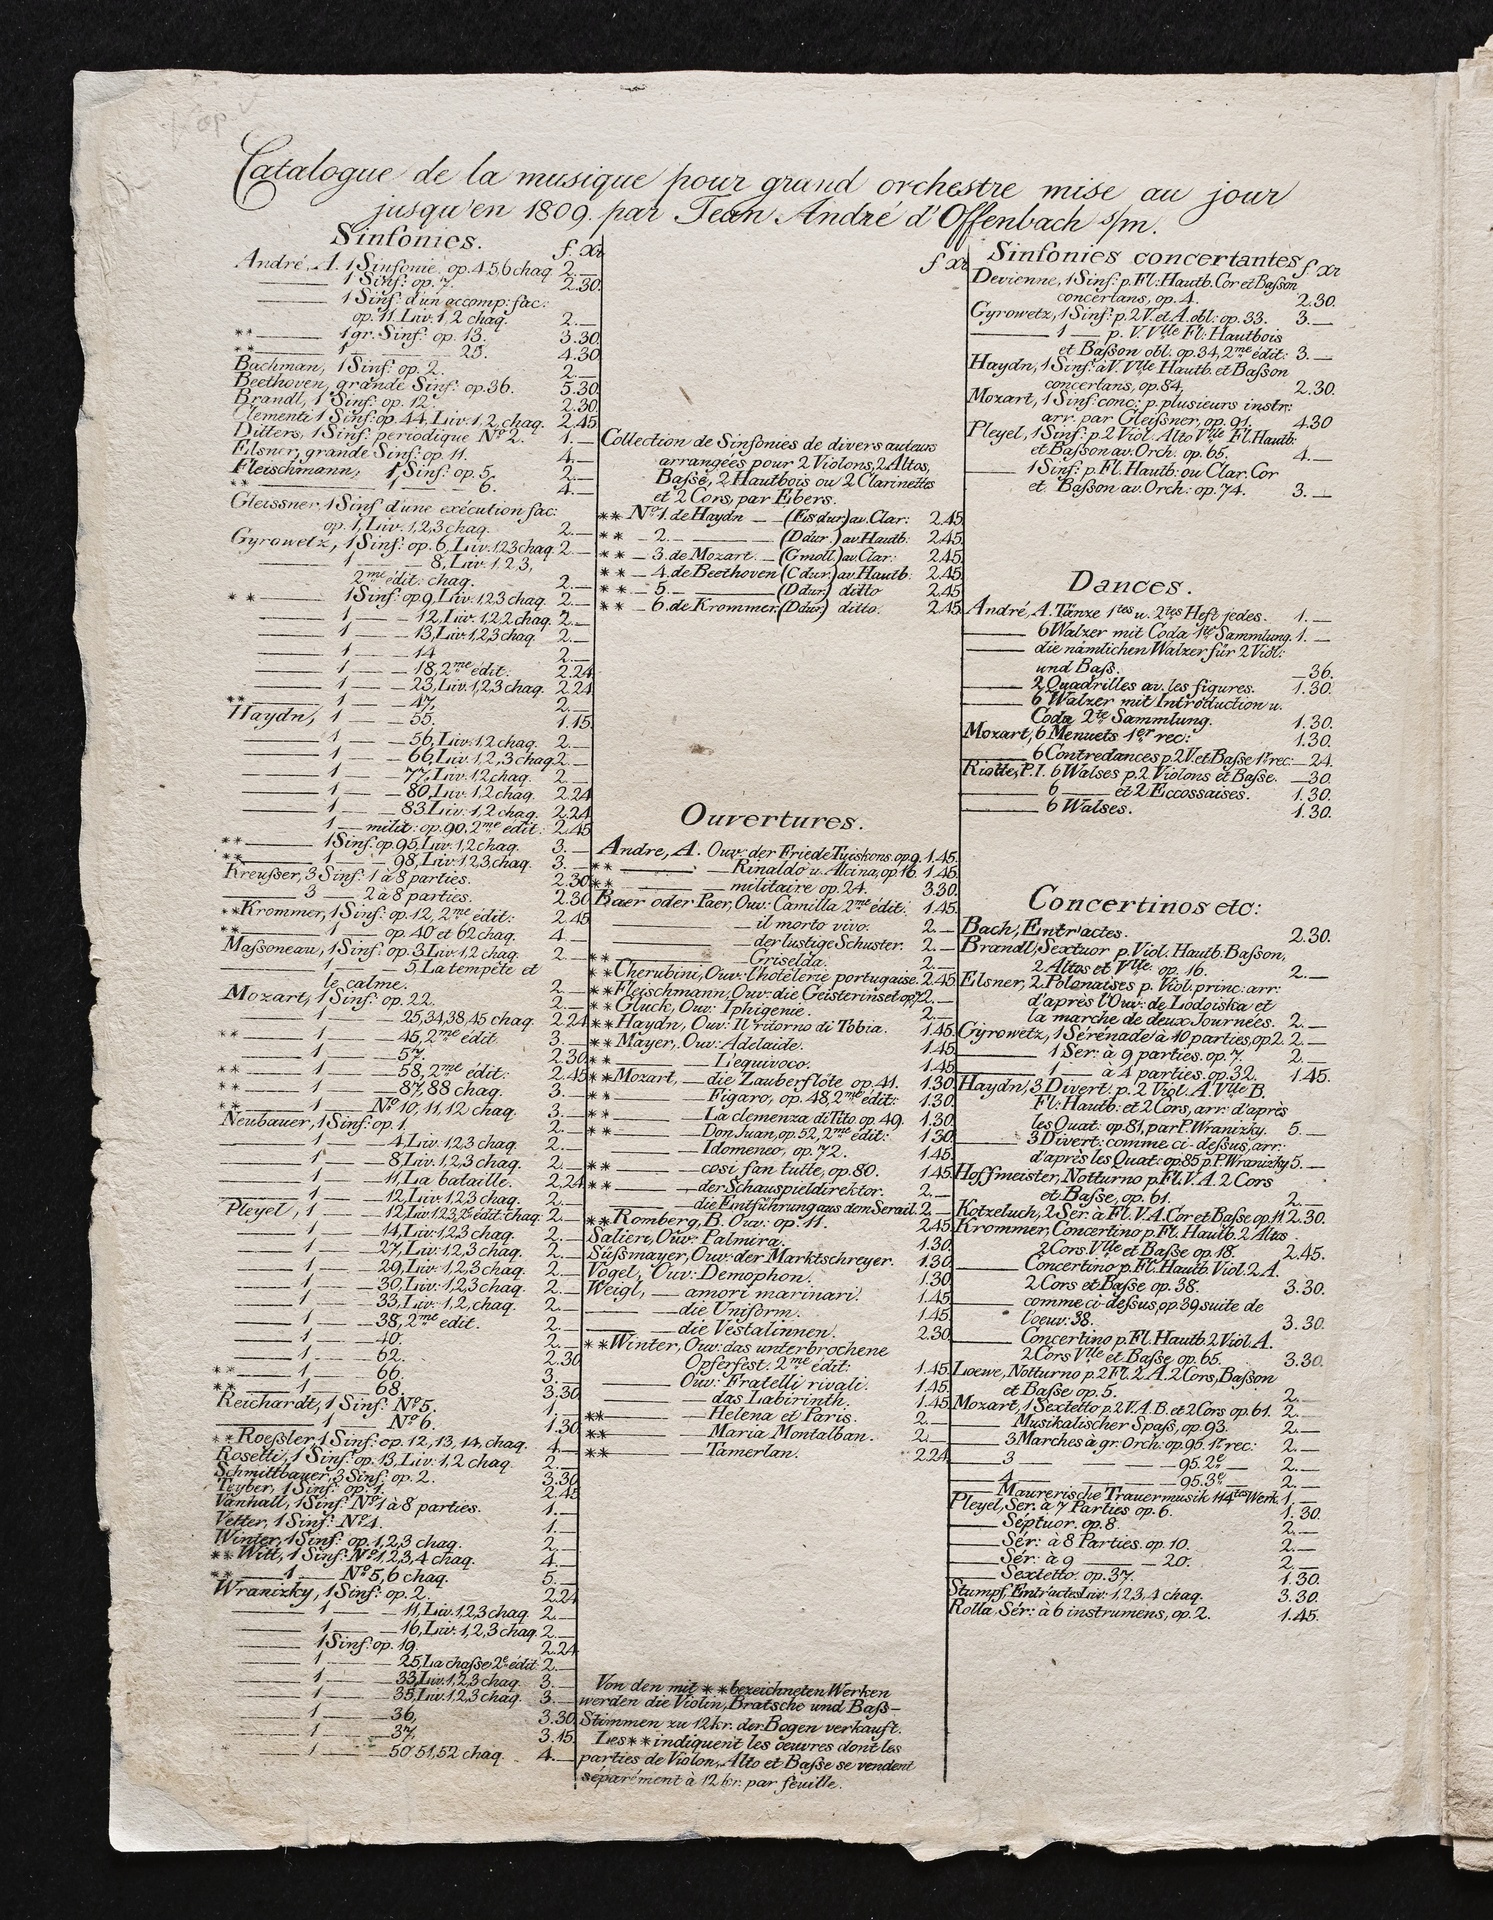 Catalogue de la musique pour grand orchestre mise au jour
jusqu'en 1809. par Jean André d'Offenbach s/m.
Sinfonies.
f. xr
André, A. 1 Sinfonie. op. 4.5.6 chaq. 2.—
—— 1 Sinf: op. 7. 2.30.
—— 1 Sinf: d'un accomp: fac:
op. 11. Liv. 1,2 chaq. 2.—
** —— 1 gr. Sinf: op. 13. 3.30.
** —— 1 —— 25. 4.30.
Bachman, 1 Sinf: op. 2. 2.—
Beethoven, grande Sinf: op. 36. 5.30.
Brandl, 1 Sinf: op. 12. 2.30.
Clementi 1 Sinf: op. 44, Liv. 1,2, chaq. 2.45.
Ditters, 1 Sinf: periodique No. 2. 1.—
Elsner, grande Sinf: op. 11. 4.—
Fleischmann, 1 Sinf: op. 5. 2.—
** —— 1 —— 6. 4.—
Gleissner, 1 Sinf d'une exécution fac:
op. 1, Liv. 1,2,3 chaq. 2.—
Gyrowetz, 1 Sinf: op. 6, Liv. 1.2.3 chaq. 2.—
—— 1 —— 8, Liv. 1,2,3,
2me édit: chaq. 2.—
** —— 1 Sinf: op. 9, Liv. 1,2,3 chaq. 2.—
—— 1 —— 12, Liv. 1,2,2 chaq. 2.—
—— 1 —— 13, Liv. 1,2,3 chaq. 2.—
—— 1 —— 14 2.—
—— 1 —— 18, 2me édit: 2.24.
—— 1 —— 23, Liv. 1,2,3 chaq. 2.24.
** —— 1 —— 47, 2.—
Haydn, 1 —— 55. 1.15.
—— 1 —— 56, Liv. 1,2 chaq. 2.—
—— 1 —— 66, Liv. 1,2,3 chaq. 2.—
—— 1 —— 77, Liv. 1,2 chaq. 2.—
—— 1 —— 80, Liv. 1,2 chaq. 2.24.
—— 1 —— 83, Liv. 1,2 chaq. 2.24.
—— 1 — milit: op. 90, 2me édit: 2.45.
** —— 1 Sinf: op. 95, Liv. 1,2 chaq. 3.—
** —— 1 —— 98, Liv. 1,2,3 chaq. 3.—
Kreußer, 3 Sinf: 1 à 8 parties. 2.30.
—— 3 —— 2 à 8 parties. 2.30.
** Krommer, 1 Sinf: op. 12, 2me édit: 2.45.
** —— 1 —— op. 40 et 62 chaq. 4.—
Maßoneau, 1 Sinf: op. 3. Liv. 1,2 chaq. 2.—
—— 1 —— 5, La tempête et
le calme. 2.—
Mozart, 1 Sinf: op. 22. 2.—
—— 1 —— 25,34,38,45 chaq. 2.24.
** —— 1 —— 45, 2me édit. 3.—
—— 1 —— 57. 2.30.
** —— 1 —— 58, 2me édit: 2.45.
** —— 1 —— 87,88 chaq. 3.—
** —— 1 —— No. 10,11,12 chaq. 3.—
Neubauer, 1 Sinf: op. 1. 2.—
—— 1 —— 4, Liv. 1,2,3 chaq. 2.—
—— 1 —— 8, Liv. 1,2,3 chaq. 2.—
—— 1 —— 11, La bataille. 2.24.
—— 1 —— 12, Liv. 1,2,3 chaq. 2.—
Pleyel, 1 —— 12, Liv. 1.2.3, 2e édit: chaq. 2.—
—— 1 —— 14, Liv. 1,2,3 chaq. 2.—
—— 1 —— 27, Liv. 1,2,3 chaq. 2.—
—— 1 —— 29, Liv. 1,2,3 chaq. 2.—
—— 1 —— 30, Liv. 1,2,3 chaq. 2.—
—— 1 —— 33, Liv. 1,2, chaq. 2.—
—— 1 —— 38, 2me edit. 2.—
—— 1 —— 40. 2.—
—— 1 —— 62. 2.30.
** —— 1 —— 66. 3.—
** —— 1 —— 68. 3.30.
Reichardt, 1 Sinf: No. 5. 1.—
—— 1 —— No. 6. 1.30.
** Roeßler 1 Sinf: op. 12, 13, 14, chaq. 4.—
Rosetti, 1 Sinf: op. 13, Liv. 1,2 chaq. 2.—
Schmittbauer, 3 Sinf: op. 2. 3.30.
Teyber, 1 Sinf: op. 1. 2.45.
Vanhall, 1 Sinf: No. 1 à 8 parties. 1.—
Vetter, 1 Sinf: No. 4. 1.—
Winter, 1 Sinf: op. 1,2,3 chaq. 2.—
** Witt, 1 Sinf: No. 1,2,3,4 chaq. 4.—
** —— 1 —— No. 5,6 chaq. 5.—
Wranizky, 1 Sinf: op. 2. 2.24.
—— 1 —— 11, Liv. 1,2,3 chaq. 2.—
—— 1 —— 16, Liv. 1,2,3 chaq. 2.—
—— 1 Sinf: op. 19. 2.24.
—— 1 —— 25, La chaße 2e édit: 2.—
—— 1 —— 33, Liv. 1,2,3 chaq. 3.—
—— 1 —— 35, Liv. 1,2,3 chaq. 3.—
—— 1 —— 36, 3.30.
—— 1 —— 37, 3.15.
—— 1 —— 50,51,52 chaq. 4.—
f xr
Collection de Sinfonies de divers auteurs
arrangées pour 2 Violons, 2 Altos,
Baße, 2 Hautbois ou 2 Clarinettes
et 2 Cors, par Ebers.
** No. 1. de Haydn — (Es dur) av. Clar: 2.45.
** — 2. —— (D dur.) av. Hautb: 2.45.
** — 3. de Mozart. — (G moll.) av. Clar: 2.45.
** — 4. de Beethoven (C dur.) av. Hautb: 2.45.
** — 5. —— (D dur.) ditto 2.45.
** — 6. de Krommer. (D dur) ditto. 2.45.
Ouvertures.
Andre, A. Ouv: der Friede Tuiskons. op. 9. 1.45.
** —— Rinaldo u. Alcina, op. 16. 1.45.
** —— militaire op. 24. 3.30.
Baer oder Paer, Ouv: Camilla 2me édit: 1.45.
—— il morto vivo. 2.—
—— der lustige Schuster. 2.—
** —— Griselda. 2.—
** Cherubini, Ouv: l'hotélerie portugaise. 2.45.
** Fleischmann, Ouv: die Geisterinsel op. 7. 2.—
** Gluck, Ouv: Iphigenie. 2.—
** Haydn, Ouv: Il ritorno di Tobia. 1.45.
** Mayer, Ouv: Adelaide. 1.45.
** —— L'equivoco. 1.45.
** Mozart, — die Zauberflöte op. 41. 1.30.
** —— Figaro, op. 48, 2me édit: 1.30.
** —— La clemenza di Tito op. 49. 1.30.
** —— Don Juan, op. 52, 2me édit: 1.30.
—— Idomeneo, op. 72. 1.45.
** —— cosi fan tutte, op. 80. 1.45.
** —— der Schauspieldirektor. 2.—
—— die Entführung aus dem Serail. 2.—
** Romberg, B. Ouv: op. 11. 2.45.
Salieri, Ouv: Palmira. 1.30.
Süßmayer, Ouv: der Marktschreyer. 1.30.
Vogel, Ouv: Demophon. 1.30.
Weigl, — amori marinari. 1.45.
—— die Uniform. 1.45.
—— die Vestalinnen. 2.30.
** Winter, Ouv: das unterbrochene
Opferfest. 2me édit: 1.45.
—— Ouv: Fratelli rivali. 1.45.
—— das Labirinth. 1.45.
** —— Helena et Paris. 2.—
** —— Maria Montalban. 2.—
** —— Tamerlan. 2.24.
Von den mit ** bezeichneten Werken
werden die Violin, Bratsche und Baß-
Stimmen zu 12 kr. der Bogen verkauft.
Les ** indiquent les oeuvres dont les
parties de Violon, Alto et Baße se vendent
séparément à 12 kr. par feuille.
Sinfonies concertantes f xr
Devienne, 1 Sinf: p. Fl: Hautb. Cor et Baßon
concertans, op. 4. 2.30.
Gyrowetz, 1 Sinf: p. 2 V. et A. obl: op. 33. 3.—
—— 1 —— p. V. Vlle Fl: Hautbois
et Baßon obl. op. 34, 2me édit: 3.—
Haydn, 1 Sinf: à V. Vlle Hautb. et Baßon
concertans, op. 84, 2.30.
Mozart, 1 Sinf: conc: p. plusieurs instr:
arr. par Gleißner, op. 91. 4.30
Pleyel, 1 Sinf: p. 2 Viol. Alto Vlle Fl. Hautb:
et Baßon av. Orch: op. 65. 4.—
—— 1 Sinf: p. Fl. Hautb: ou Clar. Cor
et Baßon av. Orch: op. 74. 3.—
Dances.
André, A. Tänze 1tes u. 2tes Heft jedes. 1.—
—— 6 Walzer mit Coda 1te Sammlung. 1.—
—— die nämlichen Walzer für 2 Viol:
und Baß. —36.
—— 2 Quadrilles av. les figures. 1.30.
—— 6 Walzer mit Introduction u.
Coda 2te Sammlung. 1.30.
Mozart, 6 Menuets 1er rec: 1.30.
—— 6 Contredances p. 2 V. et Baße 1r rec: —24.
Riotte, P. I. 6 Walses p. 2 Violons et Baße. —30.
—— 6 —— et 2 Eccossaises. 1.30.
—— 6 Walses. 1.30.
Concertinos etc:
Bach, Entr'actes. 2.30.
Brandl, Sextuor p. Viol. Hautb. Baßon,
2 Altos et Vlle op. 16. 2.—
Elsner, 2 Polonaises p. Viol: princ: arr:
d'après l'Ouv: de Lodoiska et
la marche de deux Journées. 2.—
Gyrowetz, 1 Sérénade à 10 parties, op 2. 2.—
—— 1 Sér: à 9 parties. op. 7. 2.—
—— 1 —— à 4 parties. op. 32. 1.45.
Haydn, 3 Divert: p. 2 Viol. A. Vlle B.
Fl: Hautb: et 2 Cors, arr: d'après
les Quat: op. 81, par P. Wranizky. 5.—
—— 3 Divert: comme ci-deßus, arr:
d'après les Quat: op. 85 p. P. Wranizky 5.—
Hoffmeister, Notturno p. Fl. V. A. 2 Cors
et Baße, op. 61. 2.—
Kotzeluch, 2 Sér. à Fl. V. A. Cor et Baße op. 11. 2.30.
Krommer, Concertino p. Fl. Hautb. 2 Altos
2 Cors Vlle et Baße op. 18. 2.45.
—— Concertino p. Fl. Hautb. Viol. 2 A.
2 Cors et Baße op. 38. 3.30.
—— comme ci-deßus, op. 39, suite de
l'oeuv: 38. 3.30.
—— Concertino p. Fl. Hautb. 2 Viol. A.
2 Cors Vlle et Baße op. 65. 3.30.
Loewe, Notturno p. 2 Fl. 2 A. 2 Cors, Baßon
et Baße op. 5. 2.—
Mozart, 1 Sextetto p. 2 V. A. B. et 2 Cors op. 61. 2.—
—— Musikalischer Spaß, op. 93. 2.—
—— 3 Marches à gr: Orch: op. 95. 1r rec: 2.—
—— 3 —— —— 95. 2e — 2.—
—— 4 —— —— 95. 3e — 2.—
—— Maurerische Trauermusik 114tes Werk 1.—
Pleyel, Ser. à 7 Parties op. 6. 1.30.
—— Septuor. op. 8. 2.—
—— Sér: à 8 Parties. op. 10. 2.—
—— Sér: à 9 —— 20. 2.—
—— Sextetto. op. 37. 1.30.
Stumpf, Entractes Liv: 1.2.3.4 chaq. 3.30.
Rolla, Sér: à 6 instrumens, op. 2. 1.45.